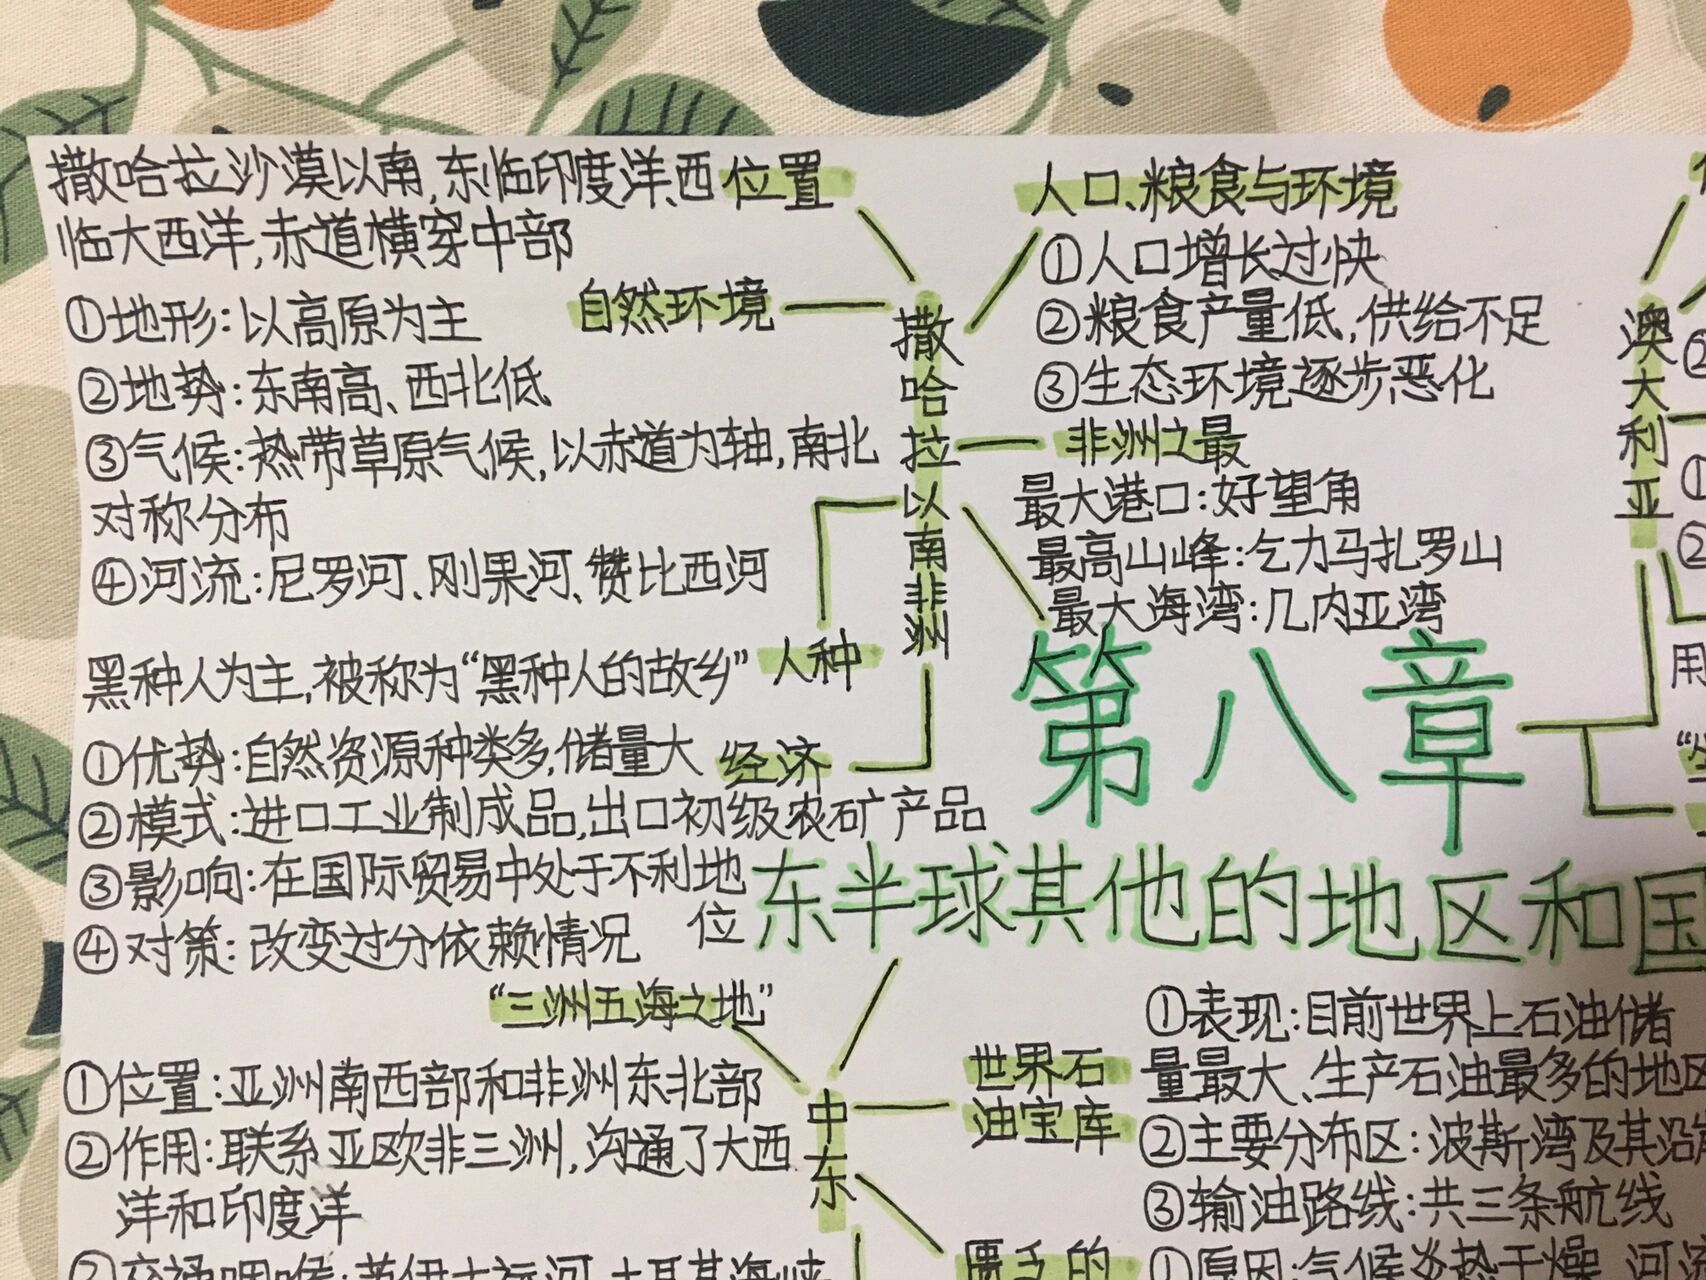 撒哈拉沙漠以南,东临印度洋、西
临大西洋,赤道横穿中部
位置
自然环境
①地形:以高原为主
②地势:东南高、西北低
③气候:热带草原气候,以赤道为轴,南北
对称分布
④河流:尼罗河、刚果河、赞比西河
人种
黑种人为主,被称为“黑种人的故乡”
经济
①优势:自然资源种类多,储量大
②模式:进口工业制成品,出口初级农矿产品
③影响:在国际贸易中处于不利地
位
④对策:改变过分依赖情况
撒哈拉以南非洲
人口、粮食与环境
①人口增长过快
②粮食产量低,供给不足
③生态环境逐步恶化
非洲之最
最大港口:好望角
最高山峰:乞力马扎罗山
最大海湾:几内亚湾
澳大利亚
②
①
②
用
第八章
东半球其他的地区和国
“三洲五海之地”
①位置:亚洲南西部和非洲东北部
②作用:联系亚欧非三洲,沟通了大西
洋和印度洋
中东
世界石
油宝库
①表现:目前世界上石油储
量最大、生产石油最多的地区
②主要分布区:波斯湾及其沿
③输油路线:共三条航线
匮乏的
①原因:气候炎热干燥,河流